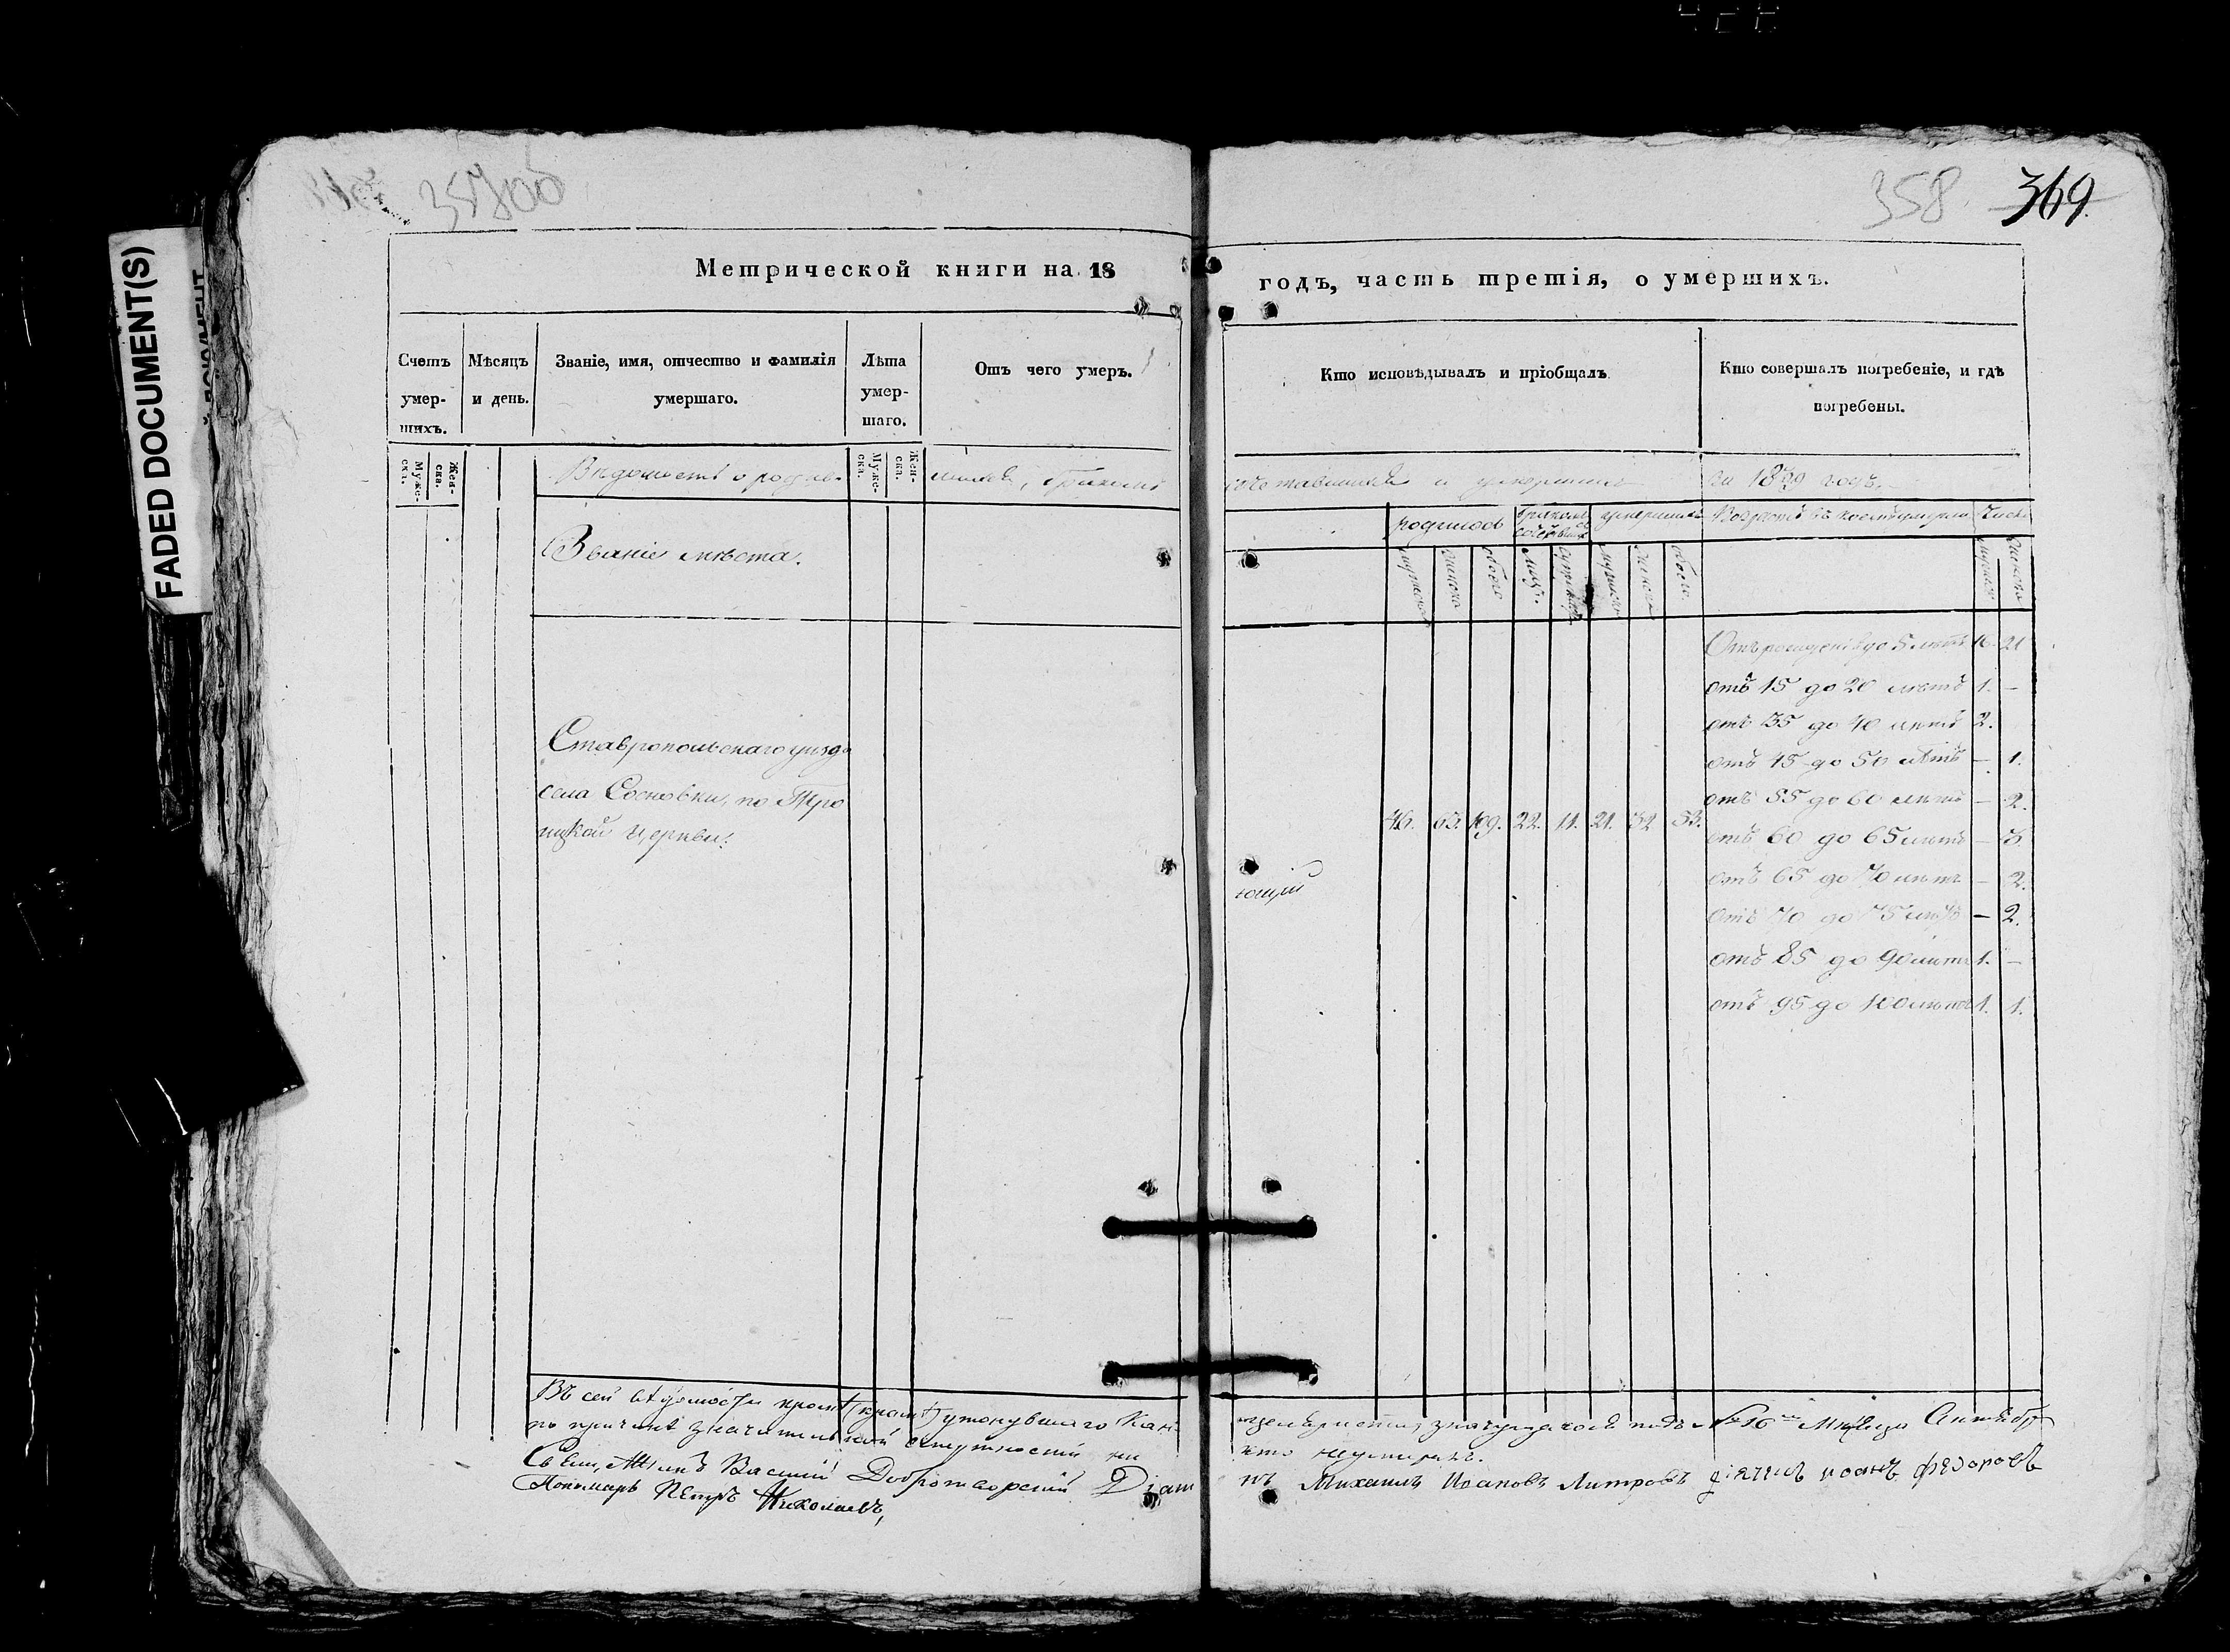 FADED DOCUMENT(S)
358 369
Метрической книги на 18 годъ, часть третія, о умершихъ.
Счетъ умер-шихъ.
Мѣсяцъ и день.
Званіе, имя, отчество и фамилія умершаго.
Лѣта умер-шаго.
Отъ чего умеръ.
Кто исповѣдывалъ и пріобщалъ
Кто совершалъ погребеніе, и гдѣ погребены.
Мужс-ска. Жен-ска. Мужс-ска. Жен-ска.
Вѣдомость о родив- шихся, бракомъ сочетавшихся и умершихъ за 1839 годъ.
Званіе мѣста.
родилось умершихъ Числ
мужеска женска обоего
Отъ рожденія до 5 лѣтъ 16. 21
отъ 15 до 20 лѣтъ 1. –
отъ 35 до 40 лѣтъ 2.
отъ 45 до 50 лѣтъ – 1.
отъ 55 до 60 лѣтъ – 2.
отъ 60 до 65 лѣтъ – 3.
отъ 65 до 70 лѣтъ – 2.
отъ 70 до 75 лѣтъ – 2.
отъ 85 до 90 лѣтъ 1. –
отъ 95 до 100 лѣтъ 1. 1.
Ставропольскаго уѣзда
села Сосновки, по Тро
ицкой церкви:
46. 63. 109. 22. 11. 21. 32. 53.
ющій
Въ сей вѣдомости кромѣ (кромѣ) утонувшаго Кан- под № 16 Мѣсяца Сентябр
по причинѣ значительной кто неумиралъ.
Василій Добротворскій Діаконъ Михаилъ Ивановъ дьячекъ иоаннъ федоровъ
Пономарь Петръ Николаевъ,